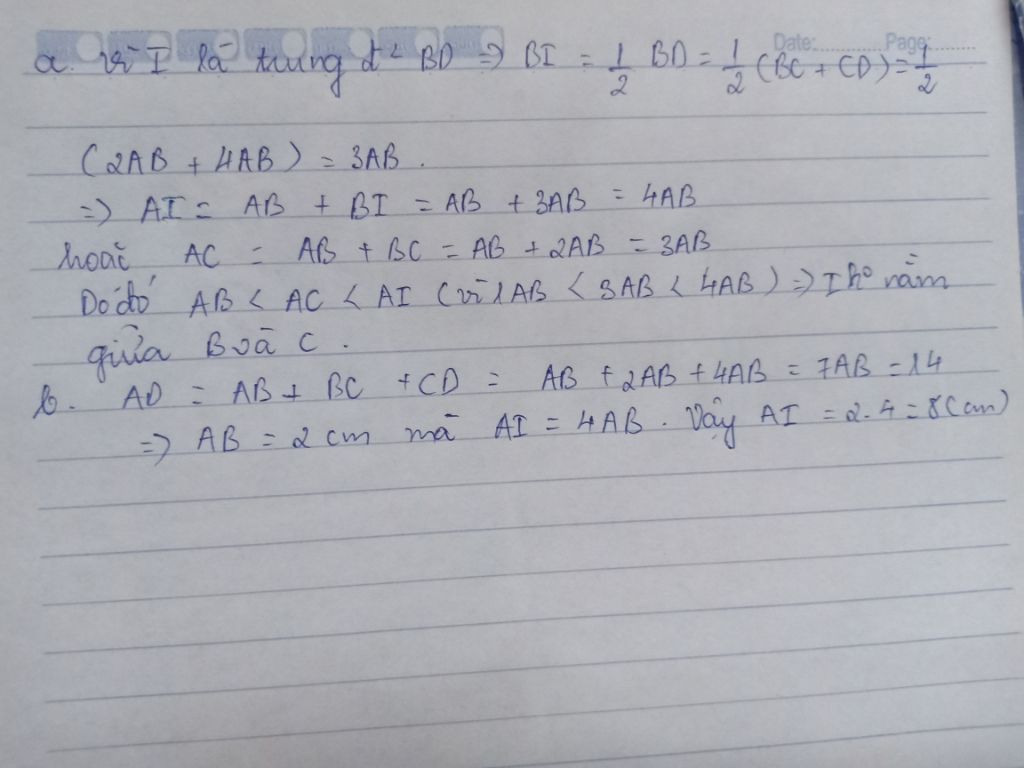 Date:............Page:............
a. vì I là trung đ² BD => BI = 1/2 BD = 1/2 (BC + CD) = 1/2
(2AB + 4AB) = 3AB.
=> AI = AB + BI = AB + 3AB = 4AB
hoặc AC = AB + BC = AB + 2AB = 3AB
Do đó AB < AC < AI (vì 1AB < 3AB < 4AB) => I kº nằm
giữa B và C.
b. AD = AB + BC + CD = AB + 2AB + 4AB = 7AB = 14
=> AB = 2 cm mà AI = 4AB. Vậy AI = 2.4 = 8 (cm)